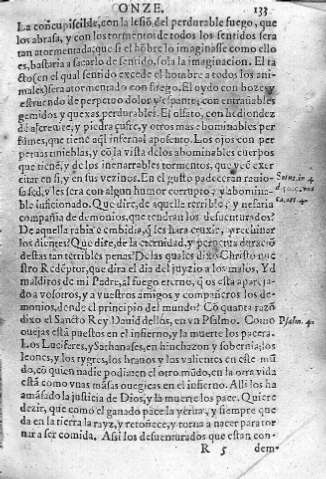 ONZE. 133
La cõcupiscible, con la lesiõ del perdurable fuego, que
los abrasa, y con los tormentos de todos los sentidos sera
tan atormentada; que si el hõbre lo imaginasse como ello
es, bastaria a sacarlo de sentido, sola la imaginacion. El ta
cto (en el qual sentido excede el hombre a todos los ani-
males) sera atormentado con fuego. El oydo con bozes y
estruendo de perpetuo dolor y espanto; con entrañables
gemidos y quexas perdurables. El olfato, con hediondez
de açreuite, y piedra çufre, y otros mas abominables per
fumes, que tiene aql infernal aposento. Los ojos con per
petuas tinieblas, y cõ la vista de los abominables cuerpos
que tienẽ, y de los inenarrables tormentos, que vẽ exer
citar en si, y en sus vezinos. En el gusto padeceran rauio
sa sed, y les sera con algun humor corrupto, y abomina-
ble inficionado. Que dire, de aquella terrible, y nefaria
compañia de demonios, que tendran los desuenturados?
De aquella rabia ẽ embidia, q̃ les hara cruxir, y rechinar
los dientes? Que dire, de la eternidad, y perpetua duraciõ
destas tan terribles penas? De las quales dixo Christo nue
stro Redẽptor, que dira el dia del juyzio a los malos, Yd
malditos de mi Padre, al fuego eterno, q̃ os esta apareja-
do a vosotros, y a vuestros amigos y compañeros los de-
monios, dende el principio del mundo? Cõ quanta razõ
dixo el Sancto Rey Dauid dellos, en vn Psalmo. Como Psalm. 4.
ouejas està puestos en el infierno, y la muerte los pacera.
Los Luciferes, y Sathanases, en hinchazon y soberuia; los
leones, y los tygres, los brauos y las valientes en este mũ
do, cõ quien nadie podia; en el otro mũdo, en la otra vida
està como vnas mãsas ouegicas en el infierno. Assi los ha
amãsado la justicia de Dios, y la muerte los pace. Quiere
dezir, que como el ganado pace la yerua, y siempre que
da en la tierra la rayz, y retoñece, y torna a nacer para tor
nar a ser comida. Assi los desuenturados que estan con-
R 5 dem-